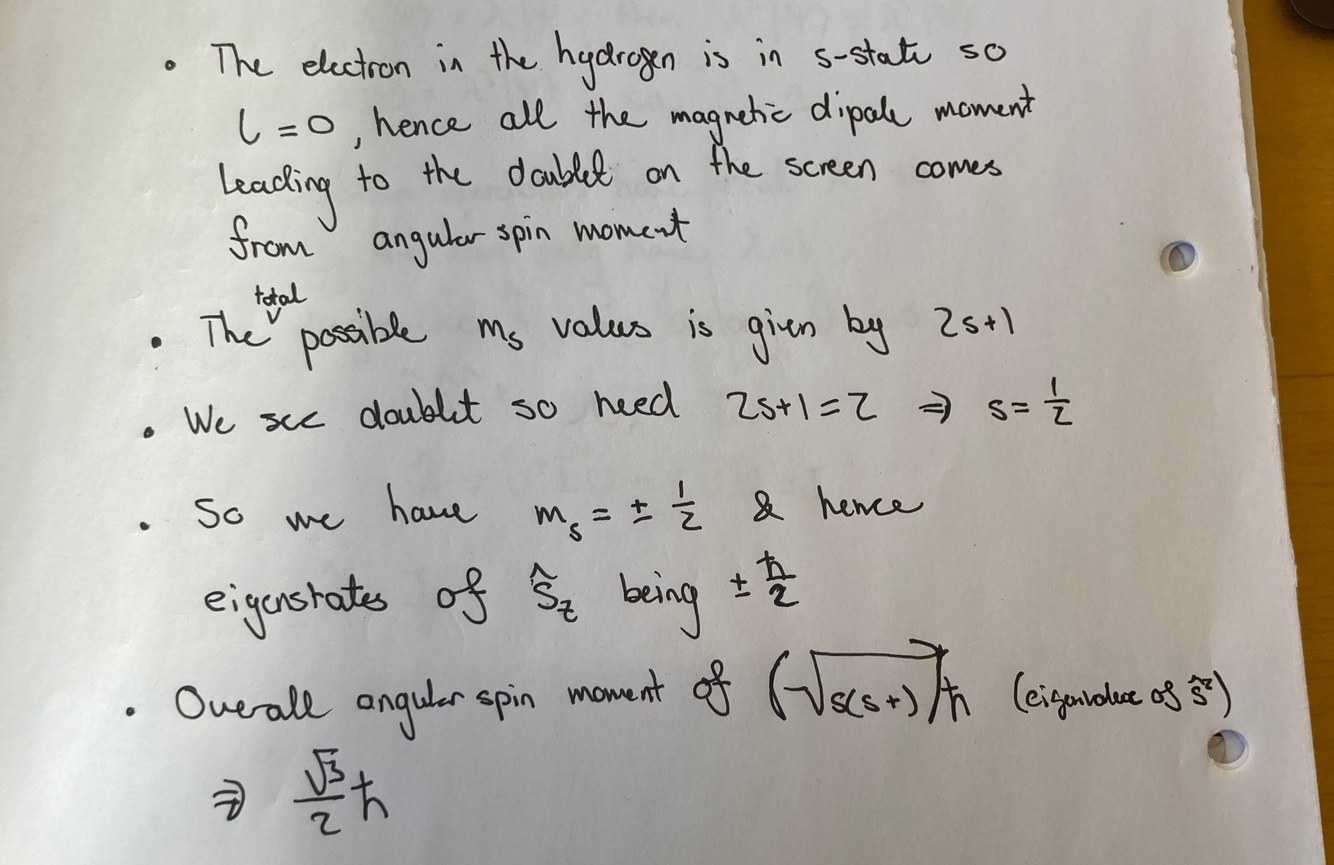 • The electron in the hydrogen is in s-state so
l = 0, hence all the magnetic dipole moment
leading to the doublet on the screen comes
from angular spin moment
total
• The possible mₛ values is given by 2s+1
• We see doublet so need 2s+1=2 ⇒ s= 1/2
• So we have mₛ = ± 1/2 & hence
eigenstates of Ŝ_z being ± ħ/2
• Overall angular spin moment of (√s(s+))ħ (eigenvalue of Ŝ²)
⇒ √3/2 ħ